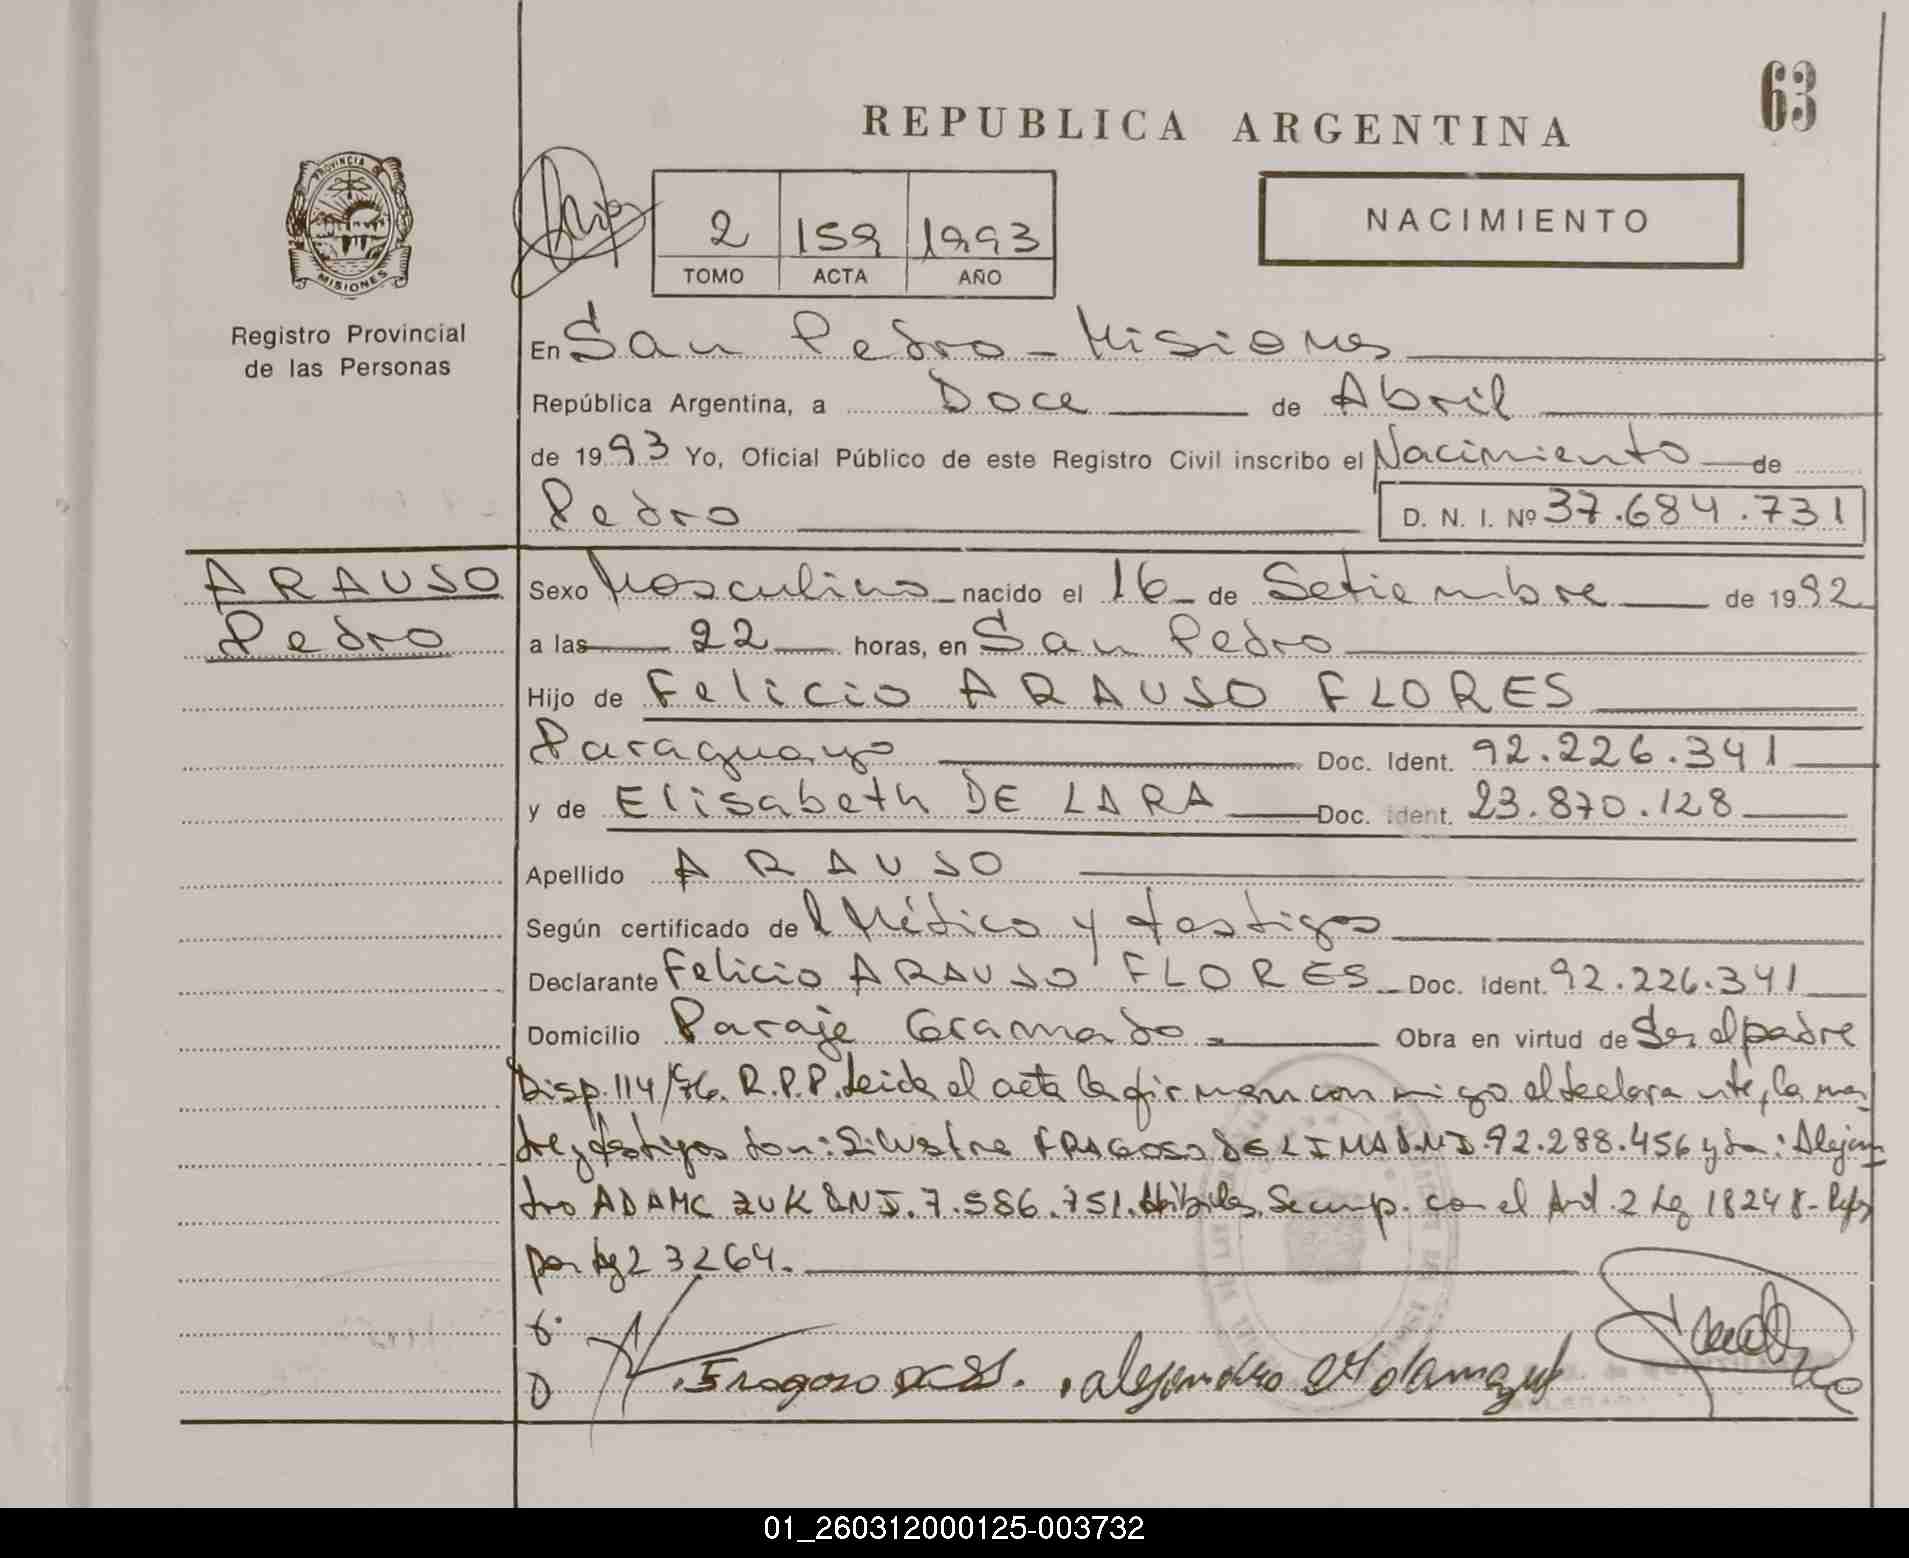 63
REPUBLICA ARGENTINA
PROVINCIA
MISIONES
Registro Provincial
de las Personas
2 159 1993
TOMO ACTA AÑO
NACIMIENTO
En San Pedro - Misiones
República Argentina, a Doce de Abril
de 1993 Yo, Oficial Público de este Registro Civil inscribo el Nacimiento de
Pedro D. N. I. Nº 37.684.731
ARAUSO
Pedro
Sexo Masculino nacido el 16 de Setiembre de 1992
a las 22 horas, en San Pedro
Hijo de Felicio ARAUSO FLORES
Paraguayo Doc. Ident. 92.226.341
y de Elisabeth DE LARA Doc. Ident. 23.870.128
Apellido ARAUSO
Según certificado del Médico y testigos
Declarante Felicio ARAUSO FLORES Doc. Ident. 92.226.341
Domicilio Paraje Gramado Obra en virtud de Ser el padre
Disp. 114/76. R.P.P. Leida el acta la firman con migo el declarante, la ma-
dre y testigos don: Silvestre FRAGOSO DE LIMA D.N.I. 92.288.456 y don: Alejan-
dro ADAMCZUK DNI. 7.586.751. Hábiles. Se cump. con el Art. 2 Ley 18248 -
por Ley 23264.
Fragoso
alejandro
01_260312000125-003732